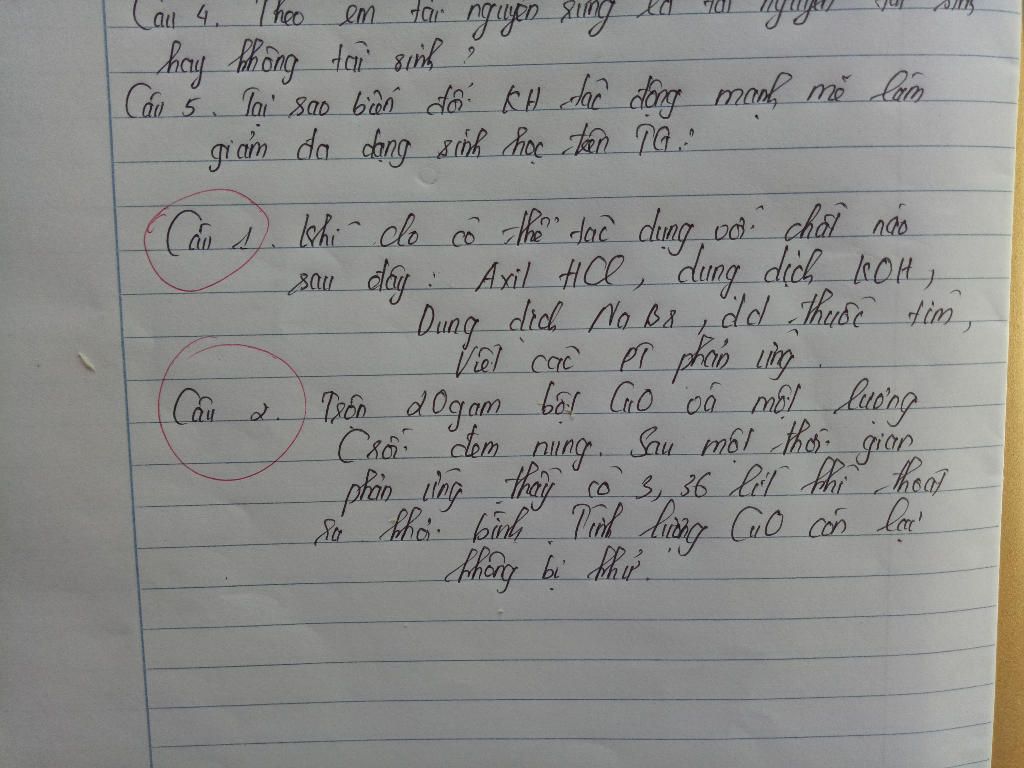 Câu 4. Theo em tài nguyên rừng là tài nguyên tái sinh
hay không tái sinh ?
Câu 5. Tại sao biến đổi KH tác động mạnh mẽ làm
giảm đa dạng sinh học trên TG.
Câu 1. Khí clo có thể tác dụng với chất nào
sau đây : Axit HCl, dung dịch KOH,
Dung dịch NaBr, dd thuốc tím,
Viết các PT phản ứng.
Câu 2. Trộn 20gam bột CuO và một lượng
C rồi đem nung. Sau một thời gian
phản ứng thấy có 3,36 lít khí thoát
ra khỏi bình. Tính lượng CuO còn lại
không bị khử.